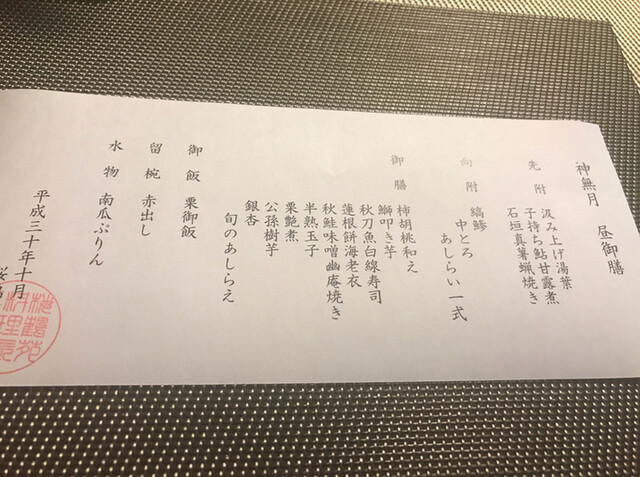 神無月 昼御膳
先附 汲み上げ湯葉
子持ち鮎甘露煮
石垣真薯蝋焼き
向附 縞鯵
中とろ
あしらい一式
御膳 柿胡桃和え
鰤叩き芋
秋刀魚白線寿司
蓮根餅海老衣
秋鮭味噌幽庵焼き
半熟玉子
栗艶煮
公孫樹芋
銀杏
旬のあしらえ
御飯 栗御飯
留椀 赤出し
水物 南瓜ぷりん
平成三十年十月